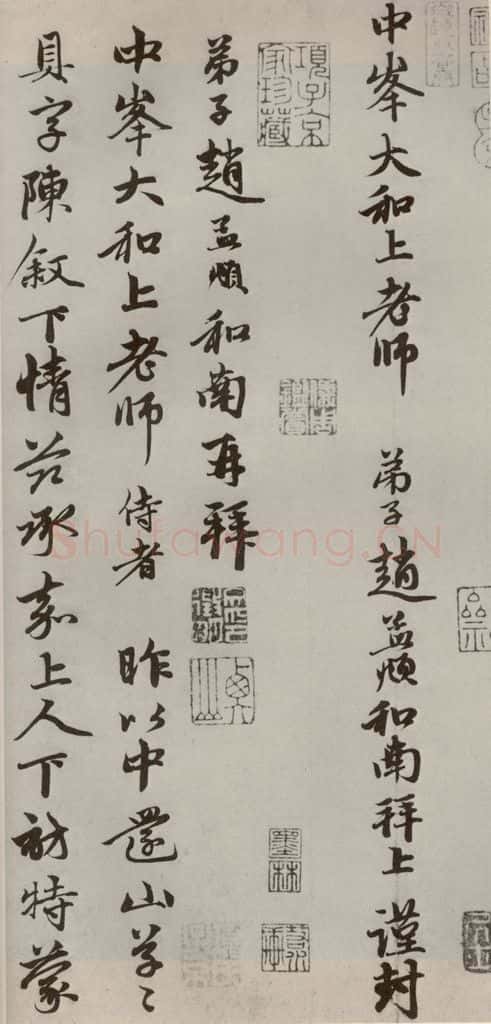 中峯大和上老师 弟子趙孟頫和南拜上 謹封
項子京家珍藏
墨林
弟子趙孟頫和南再拜
中峯大和上老师 侍者 昨以中還山草〻
具字陳叙下情兹承嘉上人下訪特蒙
Shufawang.CN